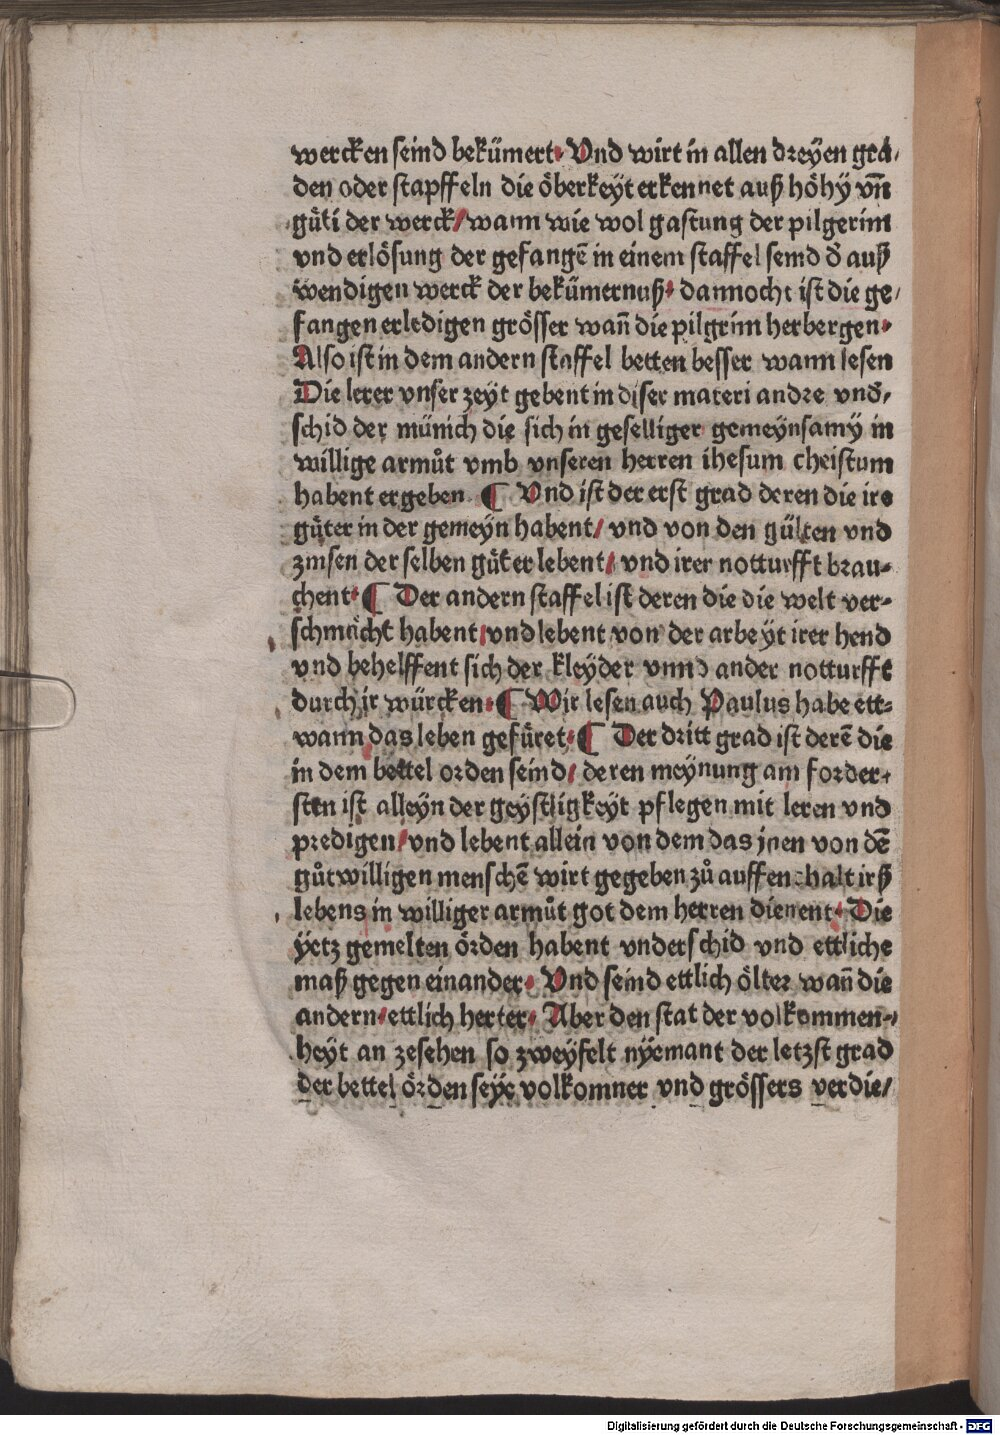 wercken seind bekümert. Vnd wirt in allen dreyen gra/
den oder stapffeln die öberkeyt erkennet auß höhy vn̄
gu̇ti der werck/ wann wie wol gastung der pilgerim
vnd erlösung der gefangē in einem staffel seind d̛ auß
wendigen werck der bekümernuß. dannocht ist die ge/
fangen erledigen grösser wan̄ die pilgrim herbergen.
Also ist in dem andern staffel betten besser wann lesen
Die lerer vnser zeyt gebent in diser materi andre vnd̛/
schid der münich die sich in geselliger gemeynsamy in
willige armůt vmb vnseren herren ihesum cheistum
habent ergeben ¶ Vnd ist der erst grad deren die ire
gu̇ter in der gemeyn habent/ vnd von den gülten vnd
zinsen der selben gu̇ter lebent/ vnd irer notturfft brau-
chent. ¶ Der andern staffel ist deren die die welt ver-
schmächt habent/ vnd lebent von der arbeyt irer hend
vnd behelffent sich der kleyder vnnd ander notturfft
durch jr würcken. ¶ Wir lesen auch Paulus habe ett-
wann das leben gefu̇ret. ¶ Der dritt grad ist derē die
in dem bettel orden seind/ deren meynung am forder-
sten ist alleyn der geystligkeyt pflegen mit leren vnd
predigen/ vnd lebent allein von dem das jnen von dē
gůtwilligen menschē wirt gegeben zů auffenthalt irß
lebens in williger armůt got dem herren dienent. Die
yetz gemelten örden habent vnderschid vnd ettliche
maß gegen einander. Vnd seind ettlich ölter wan̄ die
andern/ ettlich herter. Aber den stat der volkommen-
heyt an zesehen so zweyfelt nyemant der letzst grad
der bettel örden seye volkomner vnd grössers verdie/
Digitalisierung gefördert durch die Deutsche Forschungsgemeinschaft - DFG